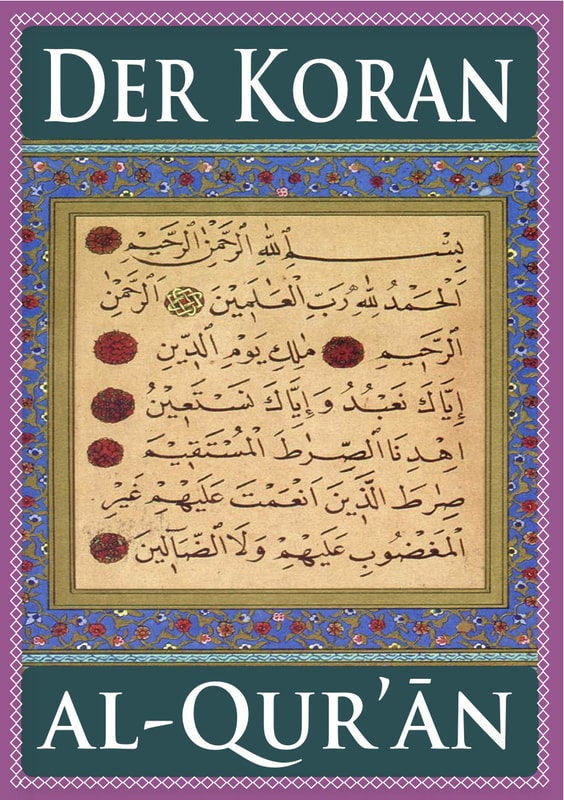 DER KORAN
بِسْمِ ٱللهِ ٱلرَّحْمٰنِ ٱلرَّحِيمِ
اَلْحَمْدُ لِلهِ رَبِّ ٱلْعَالَمِينَ ٱلرَّحْمٰنِ
ٱلرَّحِيمِ مٰلِكِ يَوْمِ ٱلدِّينِ
إِيَّاكَ نَعْبُدُ وَإِيَّاكَ نَسْتَعِينُ
اِهْدِنَا ٱلصِّرَاطَ ٱلْمُسْتَقِيمَ
صِرَاطَ ٱلَّذِينَ اَنْعَمْتَ عَلَيْهِمْ غَيْرِ
ٱلْمَغْضُوبِ عَلَيْهِمْ وَلَا ٱلضَّالِّينَ
AL-QUR’ĀN